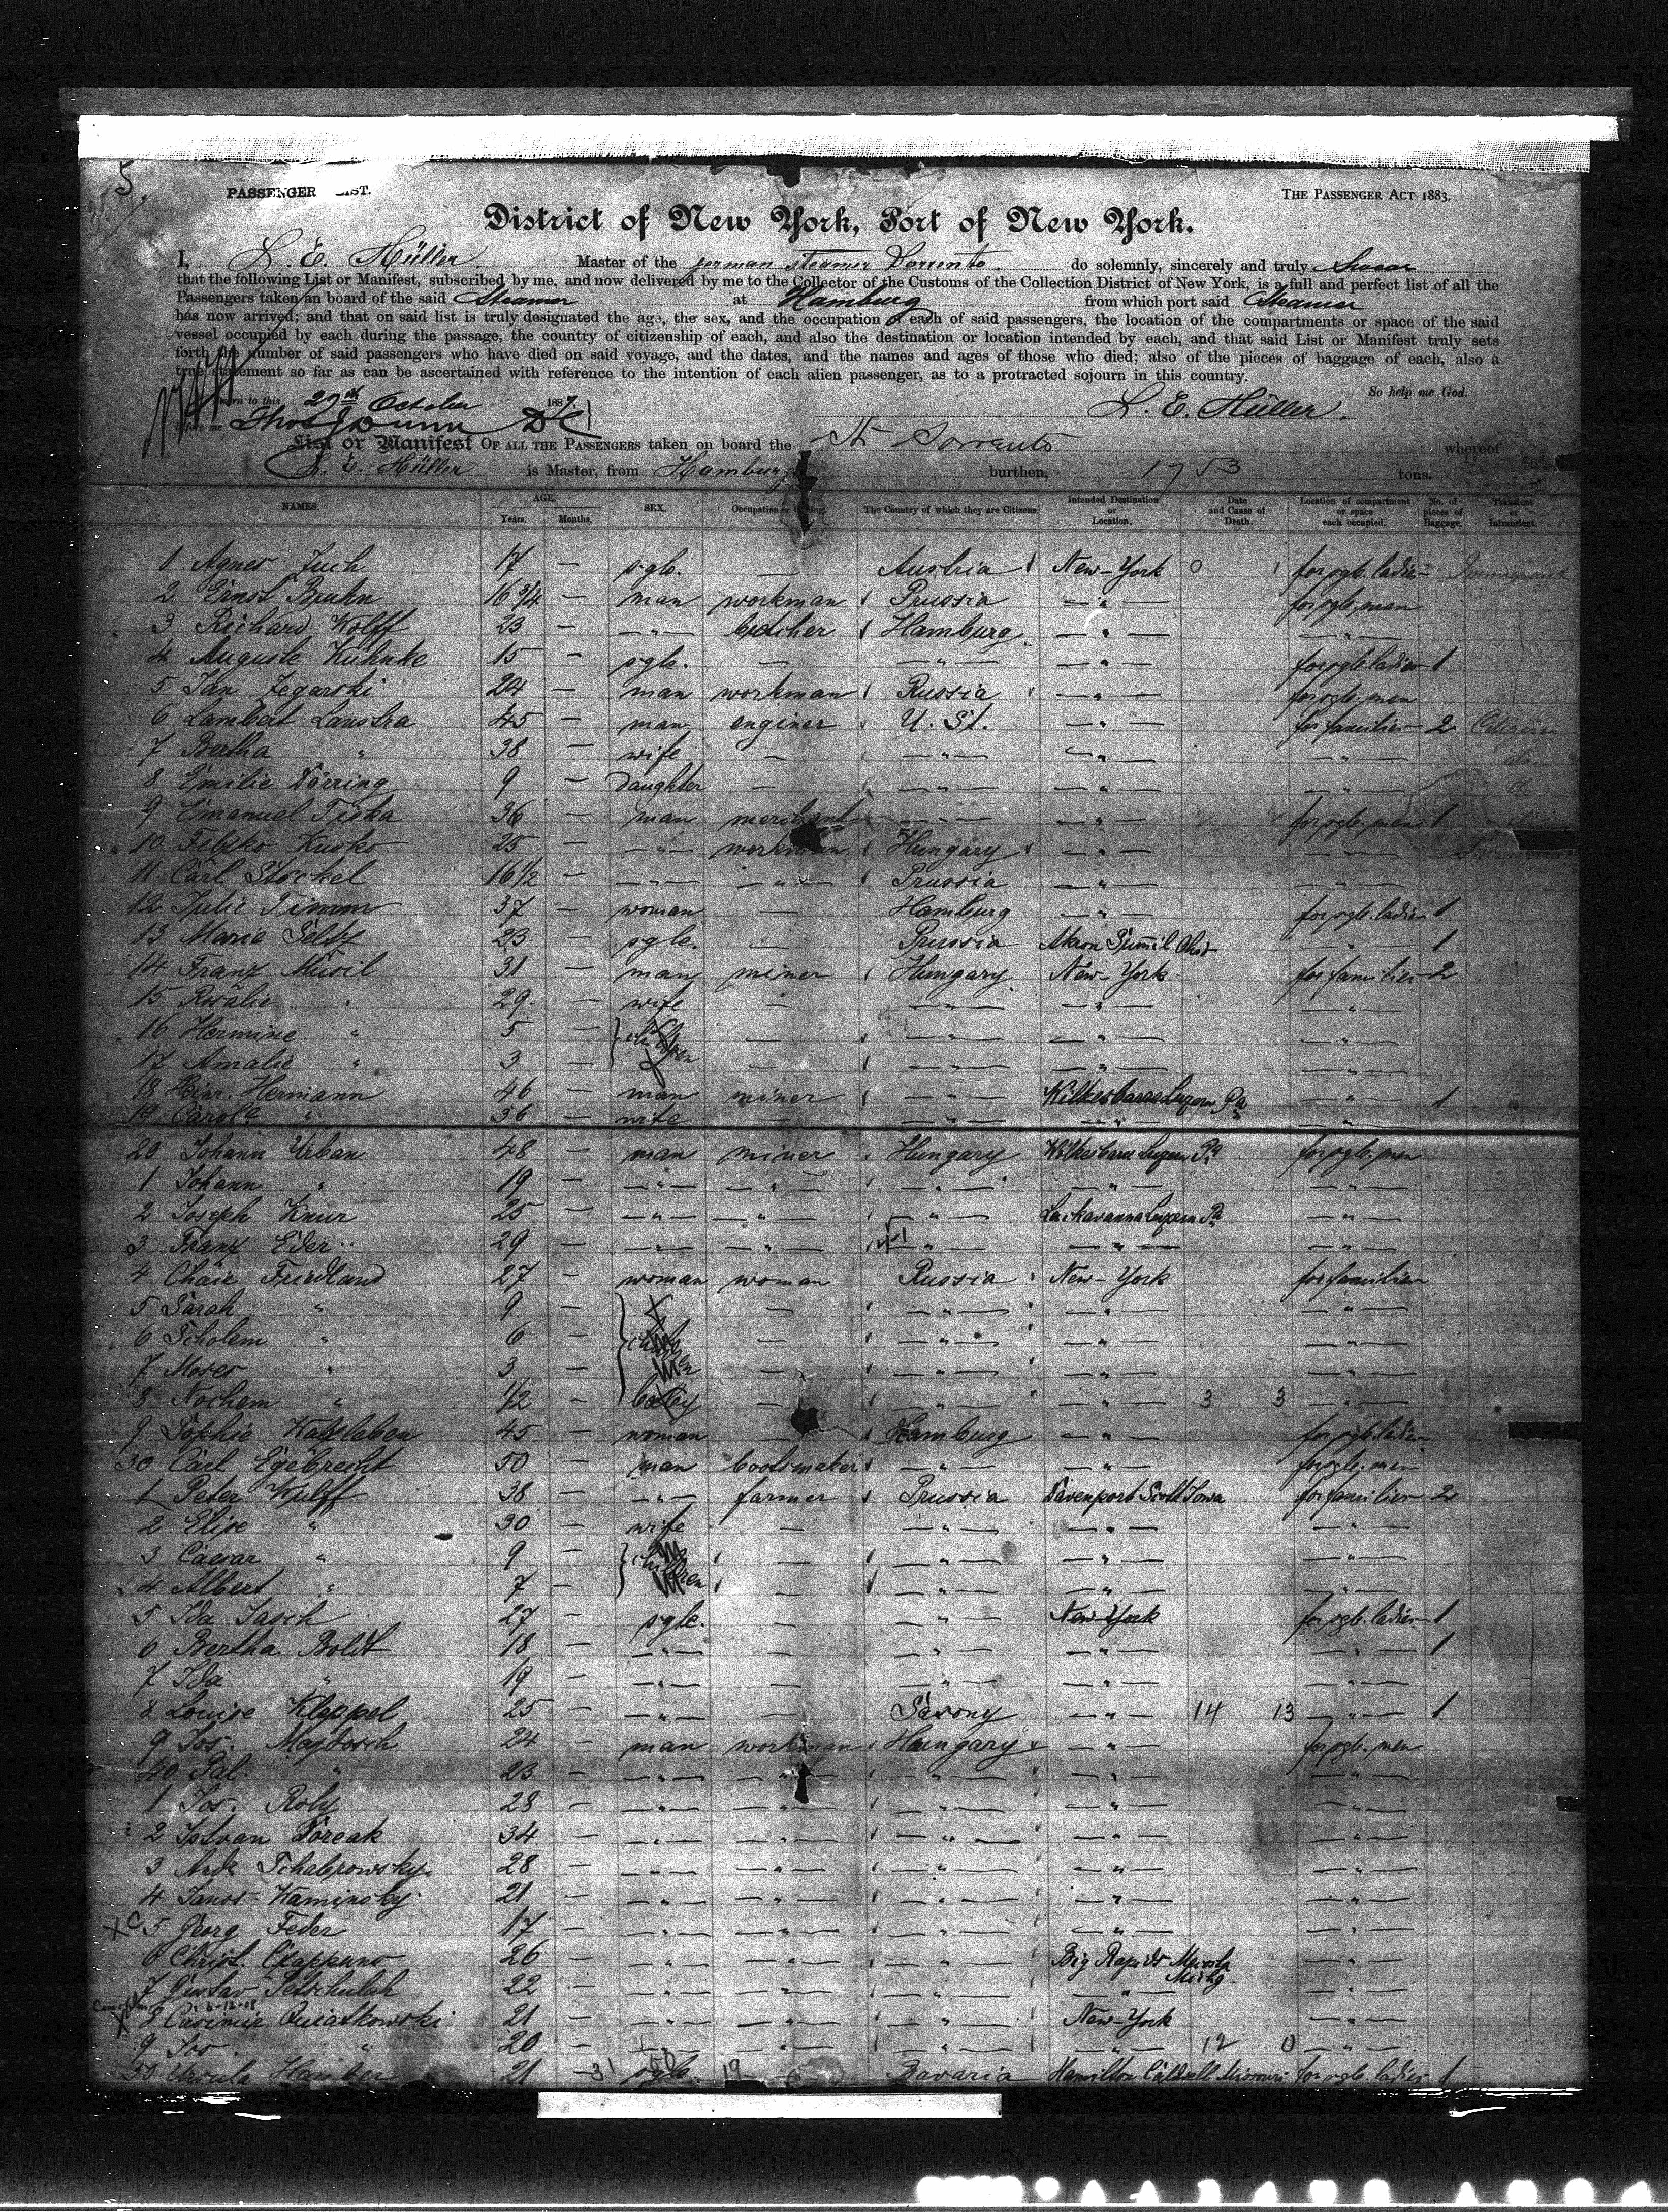 5.
PASSENGER LIST. THE PASSENGER ACT 1883.
District of New York, Port of New York.
I, L. E. Müller Master of the german steamer Sorrento do solemnly, sincerely and truly Swear
that the following List or Manifest, subscribed by me, and now delivered by me to the Collector of the Customs of the Collection District of New York, is a full and perfect list of all the
Passengers taken on board of the said Steamer at Hamburg from which port said Steamer
has now arrived; and that on said list is truly designated the age, the sex, and the occupation of each of said passengers, the location of the compartments or space of the said
vessel occupied by each during the passage, the country of citizenship of each, and also the destination or location intended by each, and that said List or Manifest truly sets
forth the number of said passengers who have died on said voyage, and the dates, and the names and ages of those who died; also of the pieces of baggage of each, also a
true statement so far as can be ascertained with reference to the intention of each alien passenger, as to a protracted sojourn in this country.
So help me God.
Sworn to this 27th October 1887. L. E. Müller.
before me Thos J Dunn DC
List or Manifest OF ALL THE PASSENGERS taken on board the St. Sorrento whereof
L. E. Müller is Master, from Hamburg burthen, 1753 tons.
NAMES. AGE. Years. Months. SEX. Occupation or Calling. The Country of which they are Citizens. Intended Destination or Location. Date and Cause of Death. Location of compartment or space each occupied. No. of pieces of Baggage. Transient or Intransient.
1 Agnes Juch 17 — sgle. — Austria New-York 0 1 for sgle. ladies Immigrant
2 Ernst Bruhn 16 3/4 — man workman Prussia — " — for sgle. men
3 Richard Wolff 23 — — " — butcher Hamburg — " — — " —
4 Auguste Kühnke 15 — sgle. — — " — — " — for sgle. ladies 1
5 Jan Zegarski 24 — man workman Russia — " — for sgle. men
6 Lambert Lanstra 45 — man enginer U. St. — " — for families 2 Citizen
7 Bertha " 38 — wife — — " — — " — — " — do
8 Emilie Dörring 9 — daughter — — " — — " — — " — do
9 Emanuel Tiska 36 — man merchant — " — — " — for sgle. men 1
10 Felzko Kusko 25 — — " — workman Hungary — " — — " —
11 Carl Stockel 16 1/2 — — " — — " — Prussia — " — — " —
12 Julie Timm 37 — woman — Hamburg — " — for sgle. ladies 1
13 Marie 23 — sgle. — Prussia Akron Summit Ohio — " — 1
14 Franz Musil 31 — man miner Hungary New-York for families 2
15 Rosalie " 29 — wife — — " — — " — — " —
16 Hermine " 5 — children — — " — — " — — " —
17 Amalie " 3 — — — " — — " — — " —
18 Heinr. Hermann 46 — man miner — " — Wilkesbarre Luzern Pa — " — 1
19 Carole " 36 — wife — " — — " —
20 Johann Urban 48 — man miner Hungary Wilkesbarre Luzern Pa for sgle. men
1 Johann " 19 — — " — — " — — " — — " — — " —
2 Joseph Knur 25 — — " — — " — — " — Lackavanna Luzern Pa — " —
3 Franz Eder 29 — — " — — " — — " — — " — — " —
4 Chaie Friedland 27 — woman woman Russia New-York for families
5 Sarah " 9 — children — — " — — " — — " —
6 Scholem " 6 — — — " — — " — — " —
7 Moses " 3 — — — " — — " — — " —
8 Nochem " 1/2 — baby — — " — — " — 3 3 — " —
9 Sophie Watzleben 45 — woman — Hamburg — " — for sgle. ladies
30 Carl Egebrecht 50 — man bootsmaker — " — — " — for sgle. men
1 Peter Wulff 38 — — " — farmer Prussia Davenport Scott Iowa for families 2
2 Elise " 30 — wife — — " — — " — — " —
3 Caesar " 9 — children — — " — — " — — " —
4 Albert " 7 — — — " — — " — — " —
5 Ida Jasch 27 — sgle. — — " — New-York for sgle. ladies 1
6 Bertha Boldt 18 — — " — — — " — — " — — " — 1
7 Ida " 19 — — " — — — " — — " — — " —
8 Louise Kleppel 25 — — " — — Saxony — " — 14 13 — " — 1
9 Jos. Majdosch 24 — man workman Hungary — " — for sgle. men
40 Pal. " 23 — — " — — " — — " — — " — — " —
1 Jos. Roly 28 — — " — — " — — " — — " — — " —
2 Istvan Doreak 34 — — " — — " — — " — — " — — " —
3 Andr. Tchabrowsky 28 — — " — — " — — " — — " — — " —
4 Janos Kaminsky 21 — — " — — " — — " — — " — — " —
X C 5 Georg Feder 17 — — " — — " — — " — — " — — " —
6 Christ. Czappano 26 — — " — — " — — " — Big Rapids Mecosta Michg. — " —
7 Gustav Petschulat 22 — — " — — " — — " — — " — — " —
X 8 Casimir Quiatkowski 21 — — " — — " — — " — New-York — " —
9 Jos. " 20 — — " — — " — — " — — " — 12 0 — " —
50 Ursula Hamber 21 — 31 sgle. 19 Bavaria Hamilton Caldwell Missouri for sgle. ladies 1